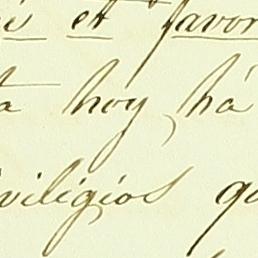 et favor
hoy, há
viligios